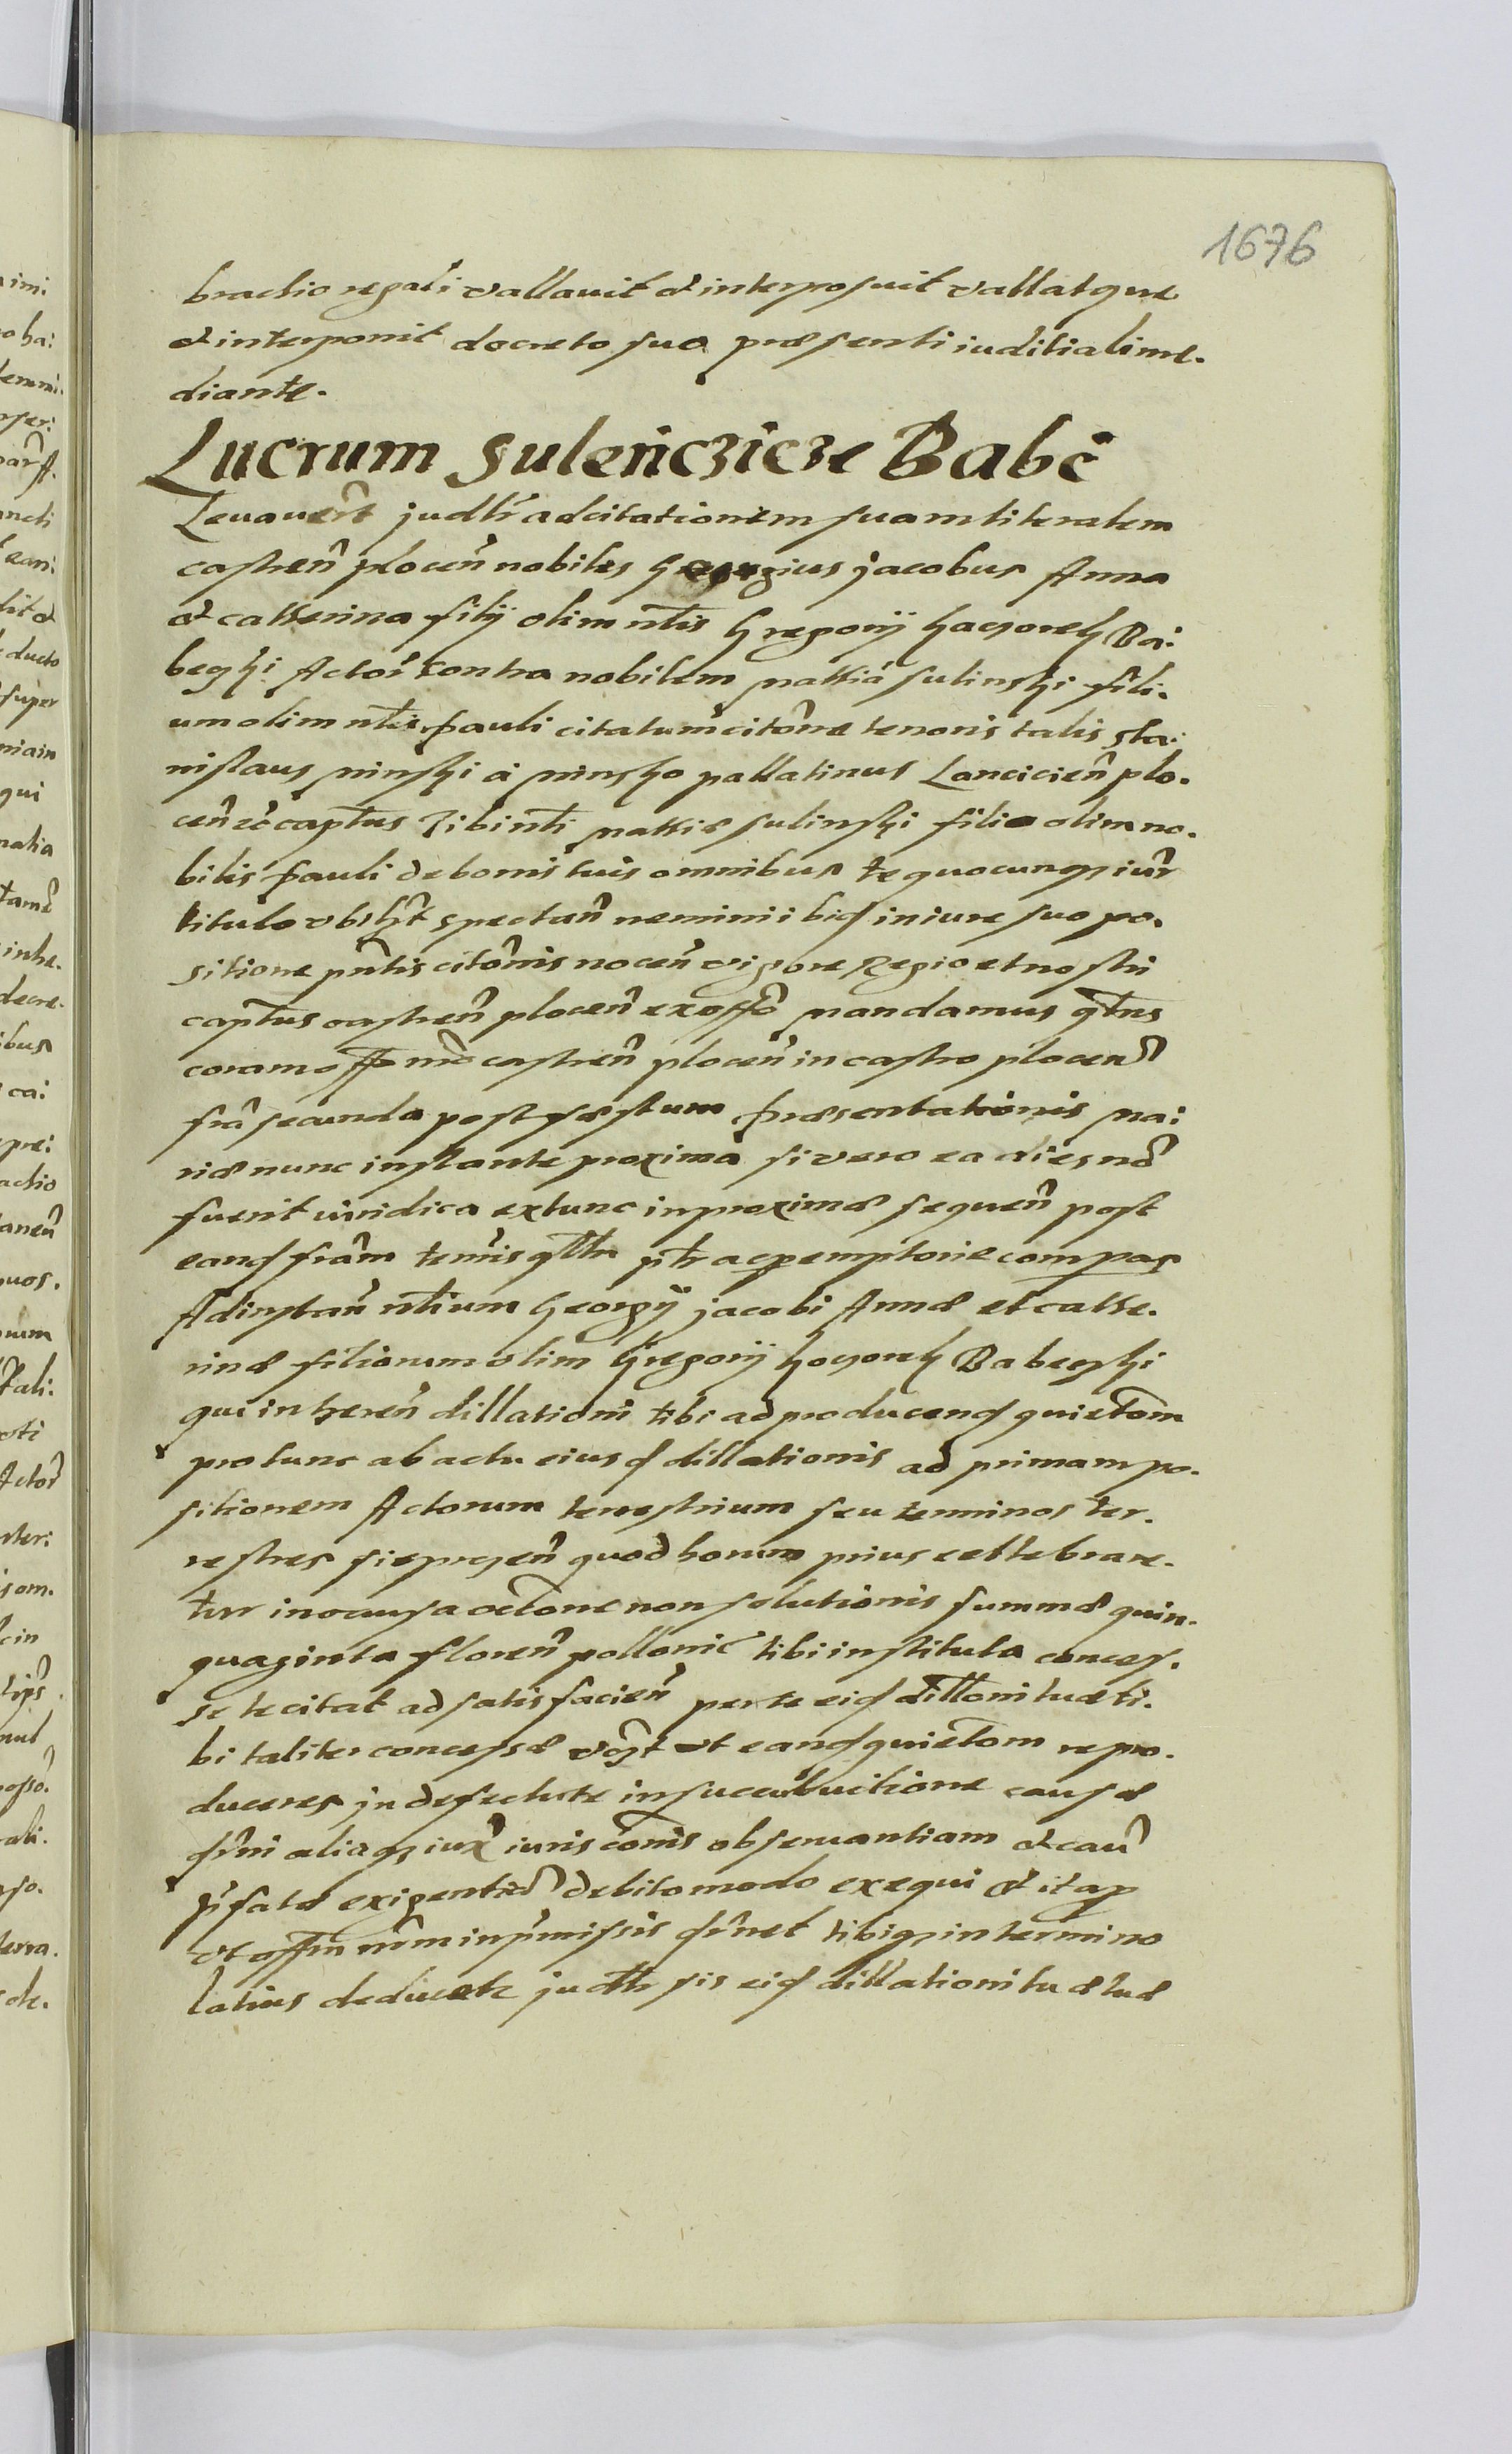 1676
brachio regali vallavit et interposuit vallatque
et interponit decreto suo præsenti iuditiali me.
diante.
Lucrum Sulenczicze Babec
Levaverῦt judlr ad citationem suam literalem
castren̄ plocen̄ nobiles Georgius Jacobus Anna
et catherina filij olim nt̄is Gregorij
beczki Actor̄ contra nobilem Mathiā Sulinski fili.
um olim nt̄is Pauli citatum citōne tenoris talis Sta:
nislaus Minski a Minsko pallatinus Lancicien̄ plo.
cen̄ capt̄us Tibi nt̄i Mathiæ Sulinski filio olim no.
bilis Pauli de bonis tuis omnibus te quocunq; iur̄
titulo spectan̄ nemini ibid in iure suo po.
sitione pn̄tis citōnis nocen̄ vigore Regio et nostri
capt̄us castren̄ plocen̄ ex offo Mandamus qt̄us
coram offo nr̄o castren̄ plocen̄ in castro plocen̄
fr̄a secunda post festum Præsentationis Ma:
riæ nunc instante proxima si vero ea dies nō
fuerit iuridica extunc in proxime sequen̄ post
eand fr̄am term̄is plr ac peremptorie compas
Ad instan̄ nt̄ium Georgij Jacobi Annæ et cathe.
rinæ filiorum olim Gregorij Babeczki
qui inheren̄ dillationi tibi ad producend quietōm
pro tunc ab actu eiusd dillationis ad primam po.
sitionem Actorum terrestrium seu terminos ter.
restres quod horum prius cellebrare.
tur in causa actōne non solutionis summæ quin.
quaginta floren̄ pollonic̄ tibi instituta conces.
se te citat ad satisfacien̄ per te eid dillōni tuæ ti.
bi taliter concessæ ut eand quietōm repro.
duceres in defectu te in succubuitione causæ
aliaq; iux̄ iuris cōnis observantiam et caus̄
p̄fatæ exigentiā debito modo exequi et itap
offm nr̄m in p̄missis tibiq; in termino
latius deducetr judlr sis eid dillationi tuæ tuæ